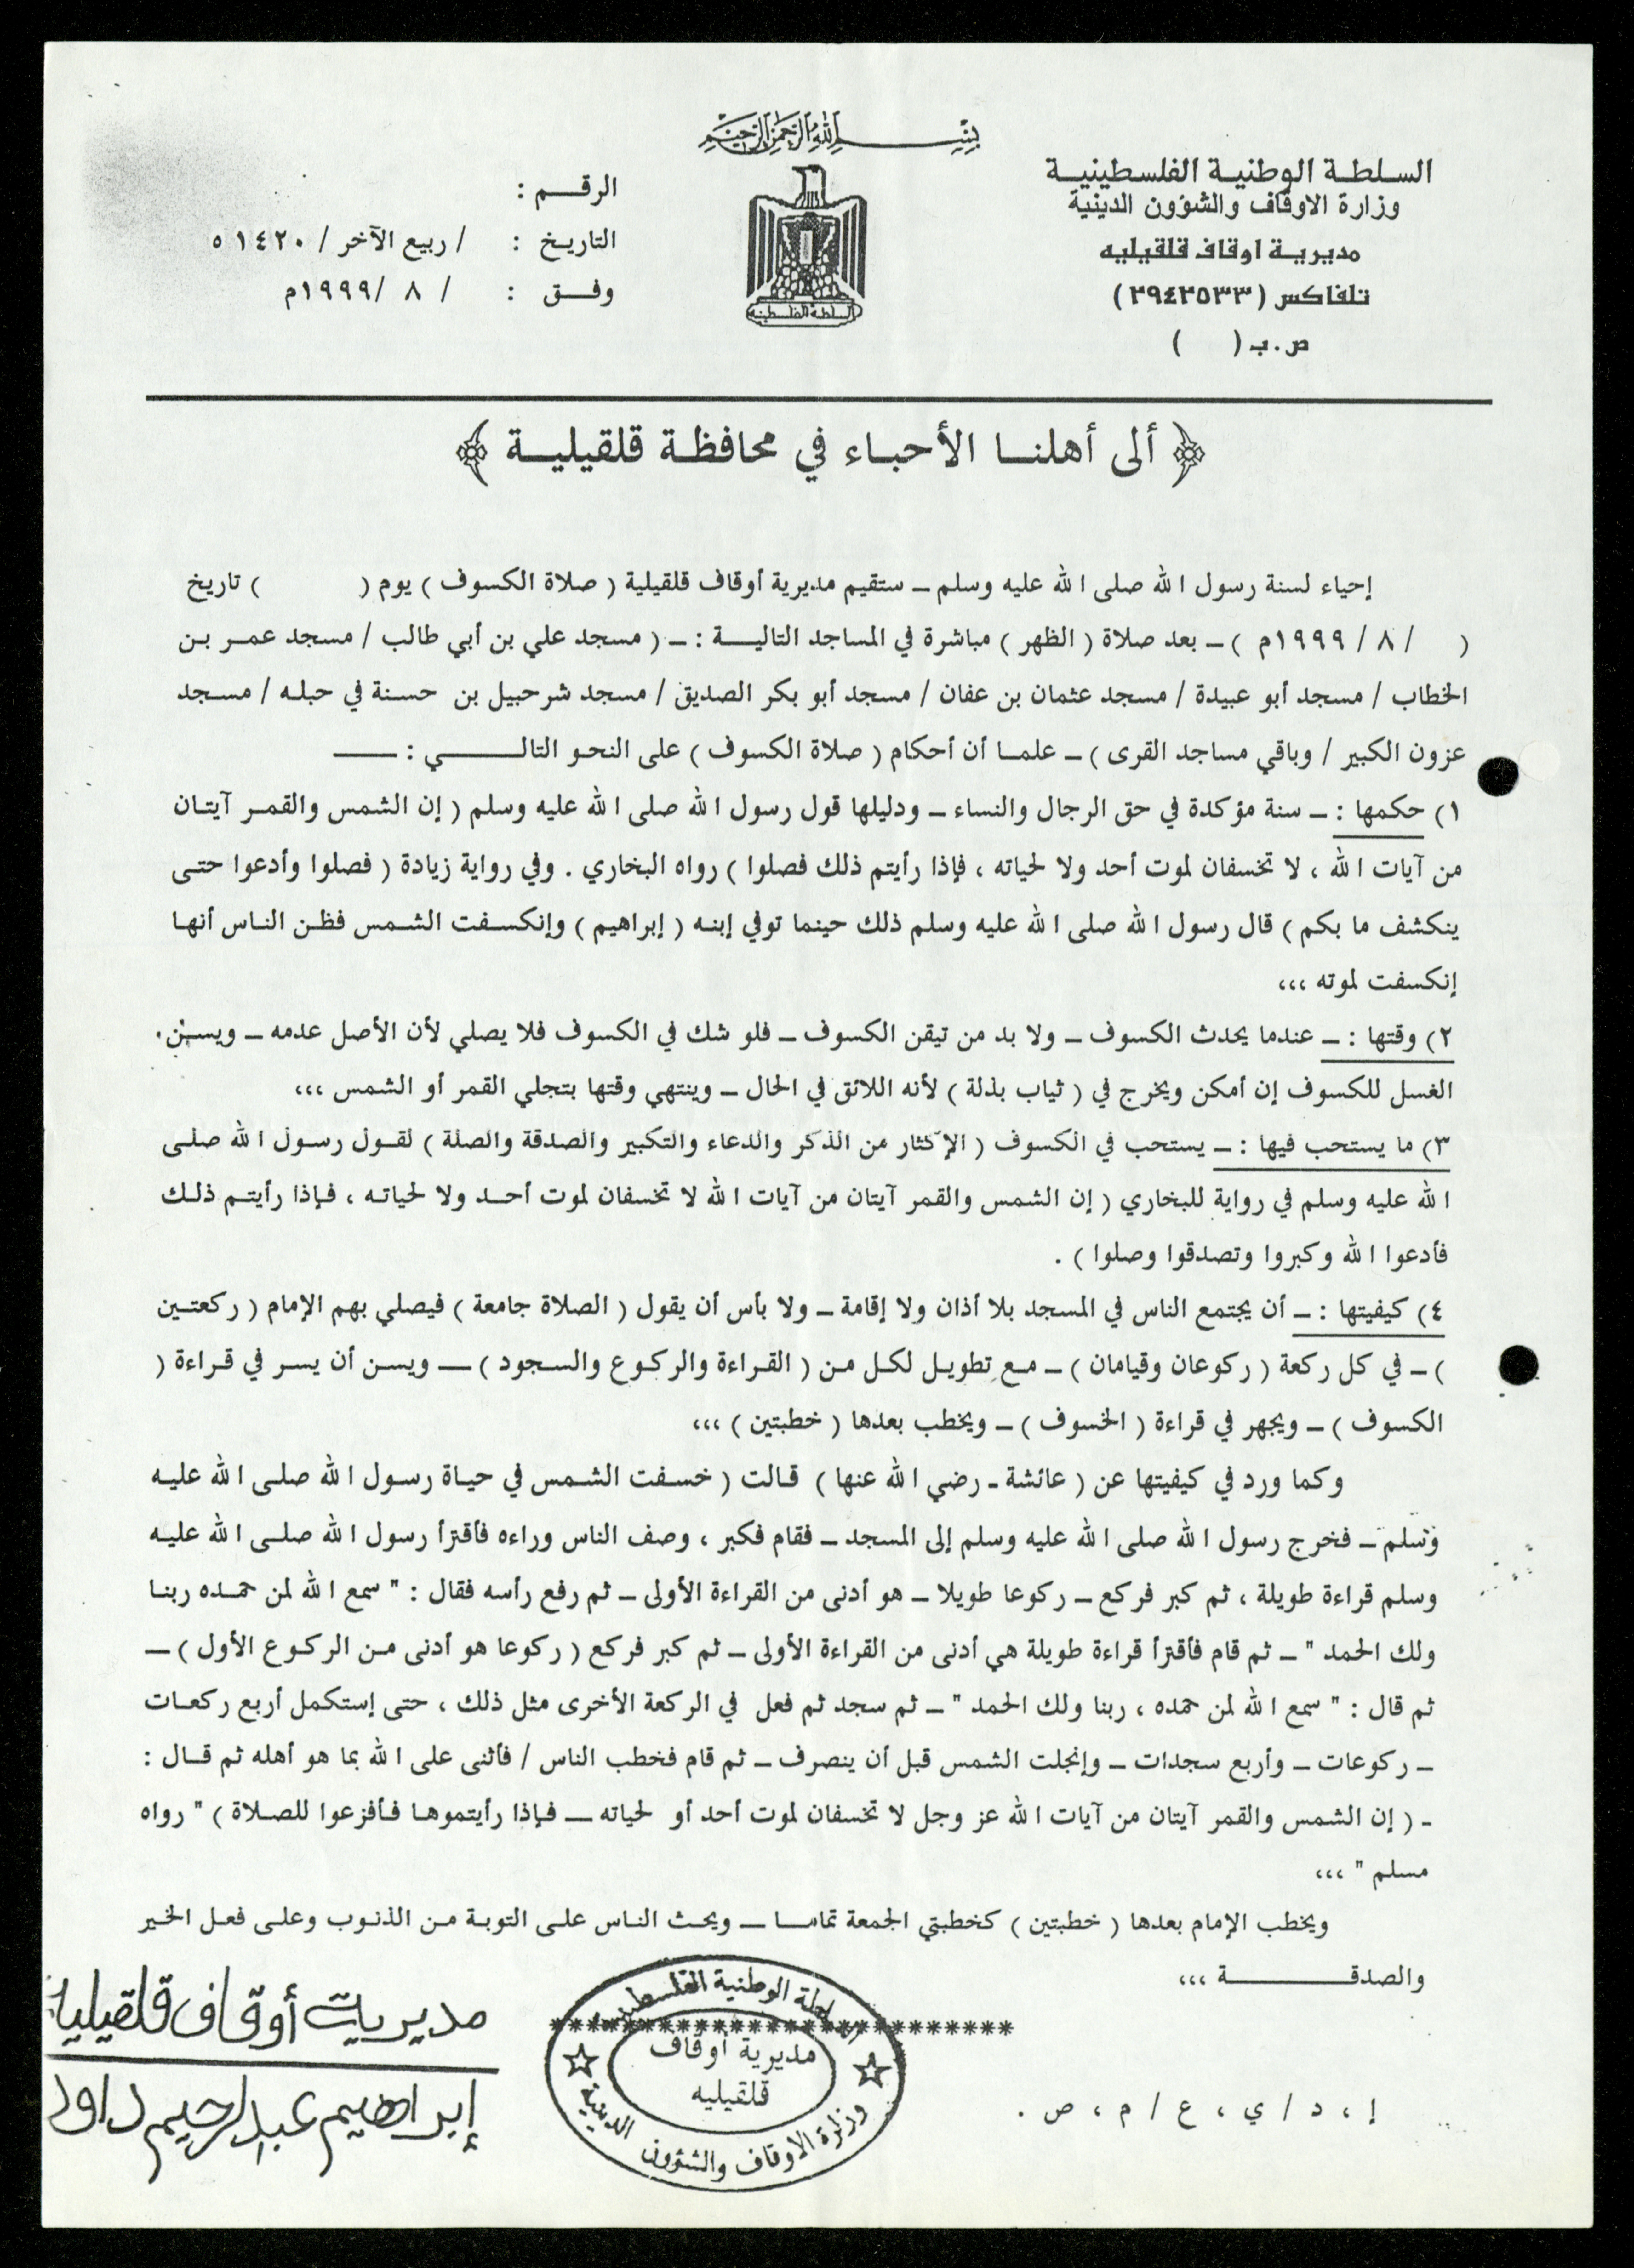 بسم الله الرحمن الرحيم
السلطة الوطنية الفلسطينية
وزارة الاوقاف والشؤون الدينية
مديرية اوقاف قلقيليه
تلفاكس (٢٩٤٢٥٣٣)
ص.ب ( )
الرقم :
التاريخ : / ربيع الآخر / ١٤٢٠ ه
وفق : / ٨ /١٩٩٩م
السلطة الفلسطينية
﴿ ألى أهلنا الأحباء في محافظة قلقيلية ﴾
إحياء لسنة رسول الله صلى الله عليه وسلم – ستقيم مديرية أوقاف قلقيلية ( صلاة الكسوف ) يوم ( ) تاريخ
( / ٨ / ١٩٩٩م ) – بعد صلاة ( الظهر ) مباشرة في المساجد التالية : – ( مسجد علي بن أبي طالب / مسجد عمر بن
الخطاب / مسجد أبو عبيدة / مسجد عثمان بن عفان / مسجد أبو بكر الصديق / مسجد شرحبيل بن حسنة في حبله / مسجد
عزون الكبير / وباقي مساجد القرى ) – علما أن أحكام ( صلاة الكسوف ) على النحو التالي : ــــ
١) حكمها : – سنة مؤكدة في حق الرجال والنساء – ودليلها قول رسول الله صلى الله عليه وسلم ( إن الشمس والقمر آيتان
من آيات الله ، لا تخسفان لموت أحد ولا لحياته ، فإذا رأيتم ذلك فصلوا ) رواه البخاري . وفي رواية زيادة ( فصلوا وأدعوا حتى
ينكشف ما بكم ) قال رسول الله صلى الله عليه وسلم ذلك حينما توفي إبنه ( إبراهيم ) وإنكسفت الشمس فظن الناس أنها
إنكسفت لموته ،،،
٢) وقتها : – عندما يحدث الكسوف – ولا بد من تيقن الكسوف – فلو شك في الكسوف فلا يصلي لأن الأصل عدمه – ويسن
الغسل للكسوف إن أمكن ويخرج في ( ثياب بذلة ) لأنه اللائق في الحال – وينتهي وقتها بتجلي القمر أو الشمس ،،،
٣) ما يستحب فيها : – يستحب في الكسوف ( الإكثار من الذكر والدعاء والتكبير والصدقة والصلة ) لقول رسول الله صلى
الله عليه وسلم في رواية للبخاري ( إن الشمس والقمر آيتان من آيات الله لا تخسفان لموت أحد ولا لحياته ، فإذا رأيتم ذلك
فأدعوا الله وكبروا وتصدقوا وصلوا ) .
٤) كيفيتها : – أن يجتمع الناس في المسجد بلا أذان ولا إقامة – ولا بأس أن يقول ( الصلاة جامعة ) فيصلي بهم الإمام ( ركعتين
) – في كل ركعة ( ركوعان وقيامان ) – مع تطويل لكل من ( القراءة والركوع والسجود ) – ويسن أن يسر في قراءة (
الكسوف ) – ويجهر في قراءة ( الخسوف ) – ويخطب بعدها ( خطبتين ) ،،،
وكما ورد في كيفيتها عن ( عائشة - رضي الله عنها ) قالت ( خسفت الشمس في حياة رسول الله صلى الله عليه
وسلم – فخرج رسول الله صلى الله عليه وسلم إلى المسجد – فقام فكبر ، وصف الناس وراءه فأقترأ رسول الله صلى الله عليه
وسلم قراءة طويلة ، ثم كبر فركع – ركوعا طويلا – هو أدنى من القراءة الأولى – ثم رفع رأسه فقال : " سمع الله لمن حمده ربنا
ولك الحمد " – ثم قام فأقترأ قراءة طويلة هي أدنى من القراءة الأولى – ثم كبر فركع ( ركوعا هو أدنى من الركوع الأول ) –
ثم قال : " سمع الله لمن حمده ، ربنا ولك الحمد " – ثم سجد ثم فعل في الركعة الأخرى مثل ذلك ، حتى إستكمل أربع ركعات
– ركوعات – وأربع سجدات – وإنجلت الشمس قبل أن ينصرف – ثم قام فخطب الناس / فأثنى على الله بما هو أهله ثم قال :
- ( إن الشمس والقمر آيتان من آيات الله عز وجل لا تخسفان لموت أحد أو لحياته – فإذا رأيتموها فأفزعوا للصلاة ) " رواه
مسلم " ،،،
ويخطب الإمام بعدها ( خطبتين ) كخطبتي الجمعة تماما – ويحث الناس على التوبة من الذنوب وعلى فعل الخير
والصدقة ،،،
*************************
إ ، د / ي ، ع / م ، ص .
السلطة الوطنية الفلسطينية
مديرية أوقاف
قلقيليه
وزارة الاوقاف والشؤون الدينية
مديرية أوقاف قلقيلية
إبراهيم عبدالرحيم داود